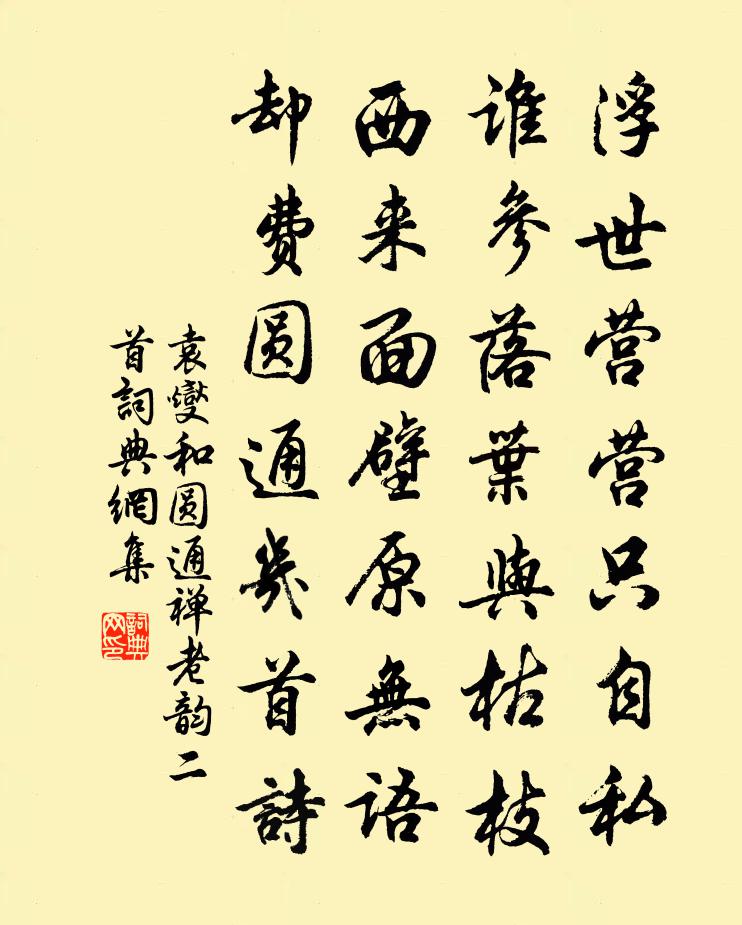 浮世营营只自私
谁参落葉與枯枝
西来面壁原無语
却费圆通幾首詩
袁燮和圆通禅老韵二
首詞典網集
詞典
网印